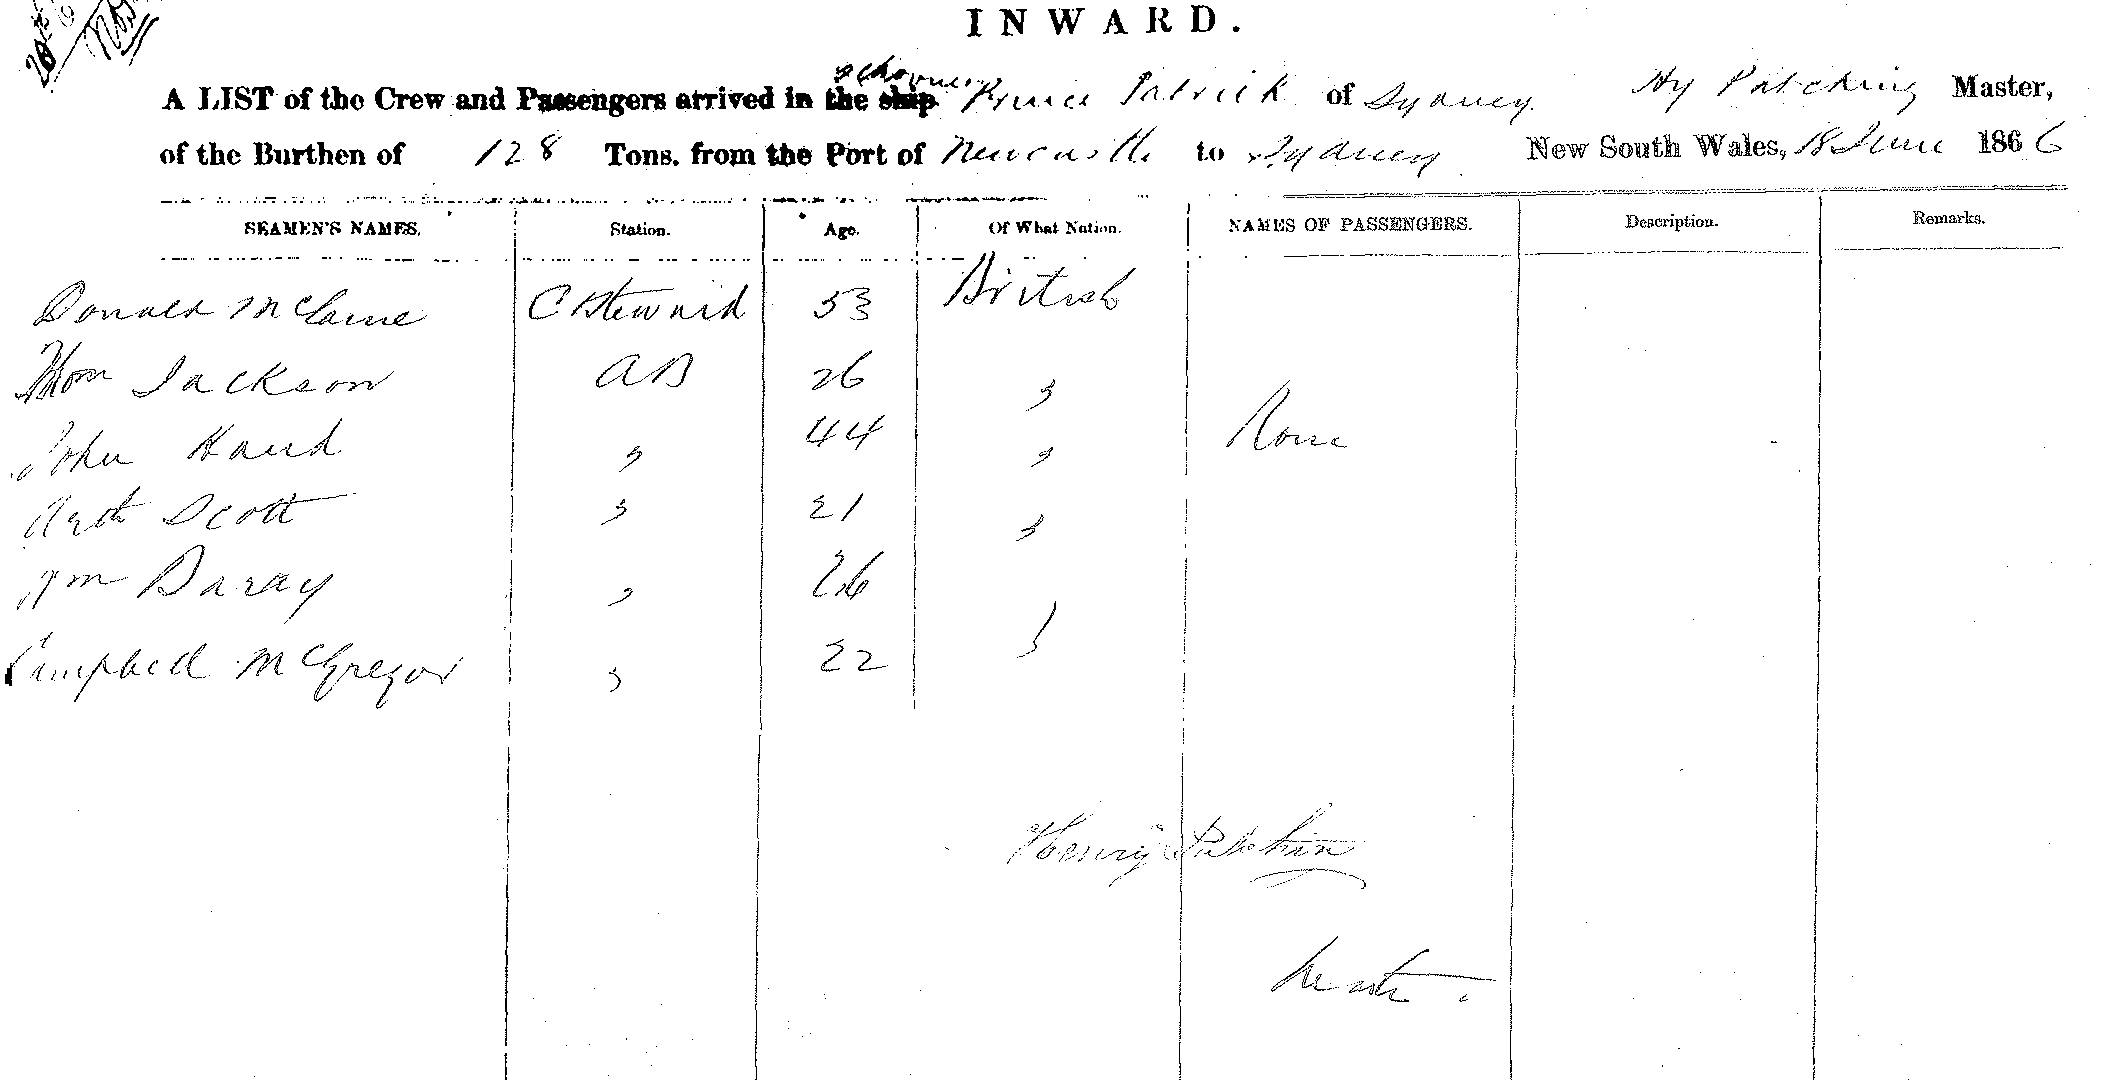 INWARD.
A LIST of the Crew and Passengers arrived in the ship schooner Prince Patrick of Sydney Hy Patching Master,
of the Burthen of 128 Tons. from the Port of Newcastle to Sydney New South Wales, 18 June 1866
SEAMEN'S NAMES. Station. Age. Of What Nation. NAMES OF PASSENGERS. Description. Remarks.
Donald McLaine C Steward 53 British
Jackson AB 26 "
John Hand " 44 " None
Scott " 21 "
Wm Daray " 26
Campbell McGregor " 22 "
Henry Patchin
Master.